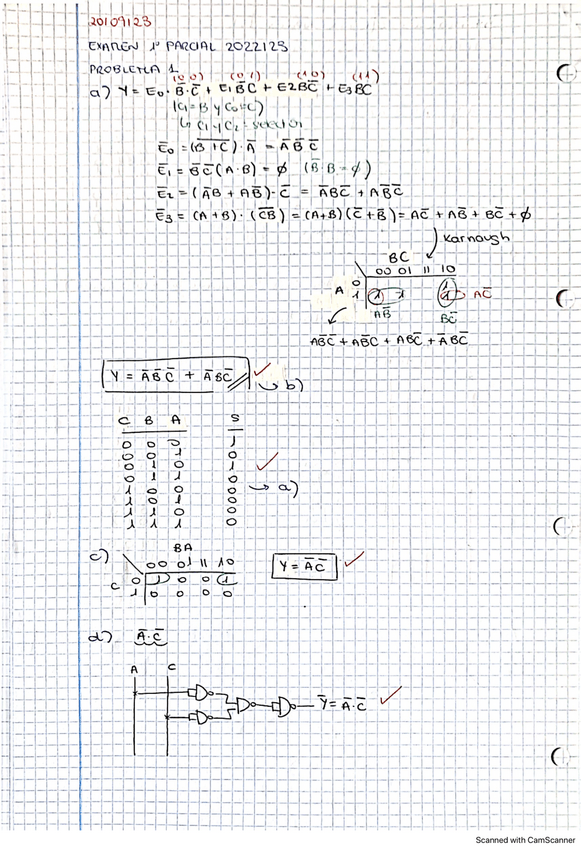 20109123
EXAMEN 1º PARCIAL 2022123
PROBLEMA 1
(00) (01) (10) (11)
a) Y = E₀·B̅·C̅ + E₁B̅C + E2BC̅ + E₃BC
(C₁=B y C₀=C)
↳ C₁ y C₂ =
E̅₀ = (B̅+̅C̅)·A̅ = A̅B̅C̅
E̅₁ = B̅C̅(A·B) = ϕ (B̅·B=ϕ)
E̅₂ = (A̅B + AB̅)·C̅ = A̅BC̅ + AB̅C̅
E̅₃ = (A+B)·(C̅B̅) = (A+B)(C̅+B̅) = AC̅ + AB̅ + BC̅ + ϕ
Karnaugh
BC
00 01 11 10
0 1
A 1 1 1 1 AC̅
AB̅ BC̅
AB̅C̅ + AB̅C + ABC̅ + A̅BC̅
Y = A̅B̅C̅ + A̅BC̅ → b)
C B A S
0 0 0 1
0 0 1 0
0 1 0 1
0 1 1 0 → a)
1 0 0 0
1 0 1 0
1 1 0 0
1 1 1 0
c) BA
00 01 11 10
C 0 1 0 0 1 Y = A̅C̅
1 0 0 0 0
d) A̅·C̅
A C
Y̅ = A̅·C̅
Scanned with CamScanner